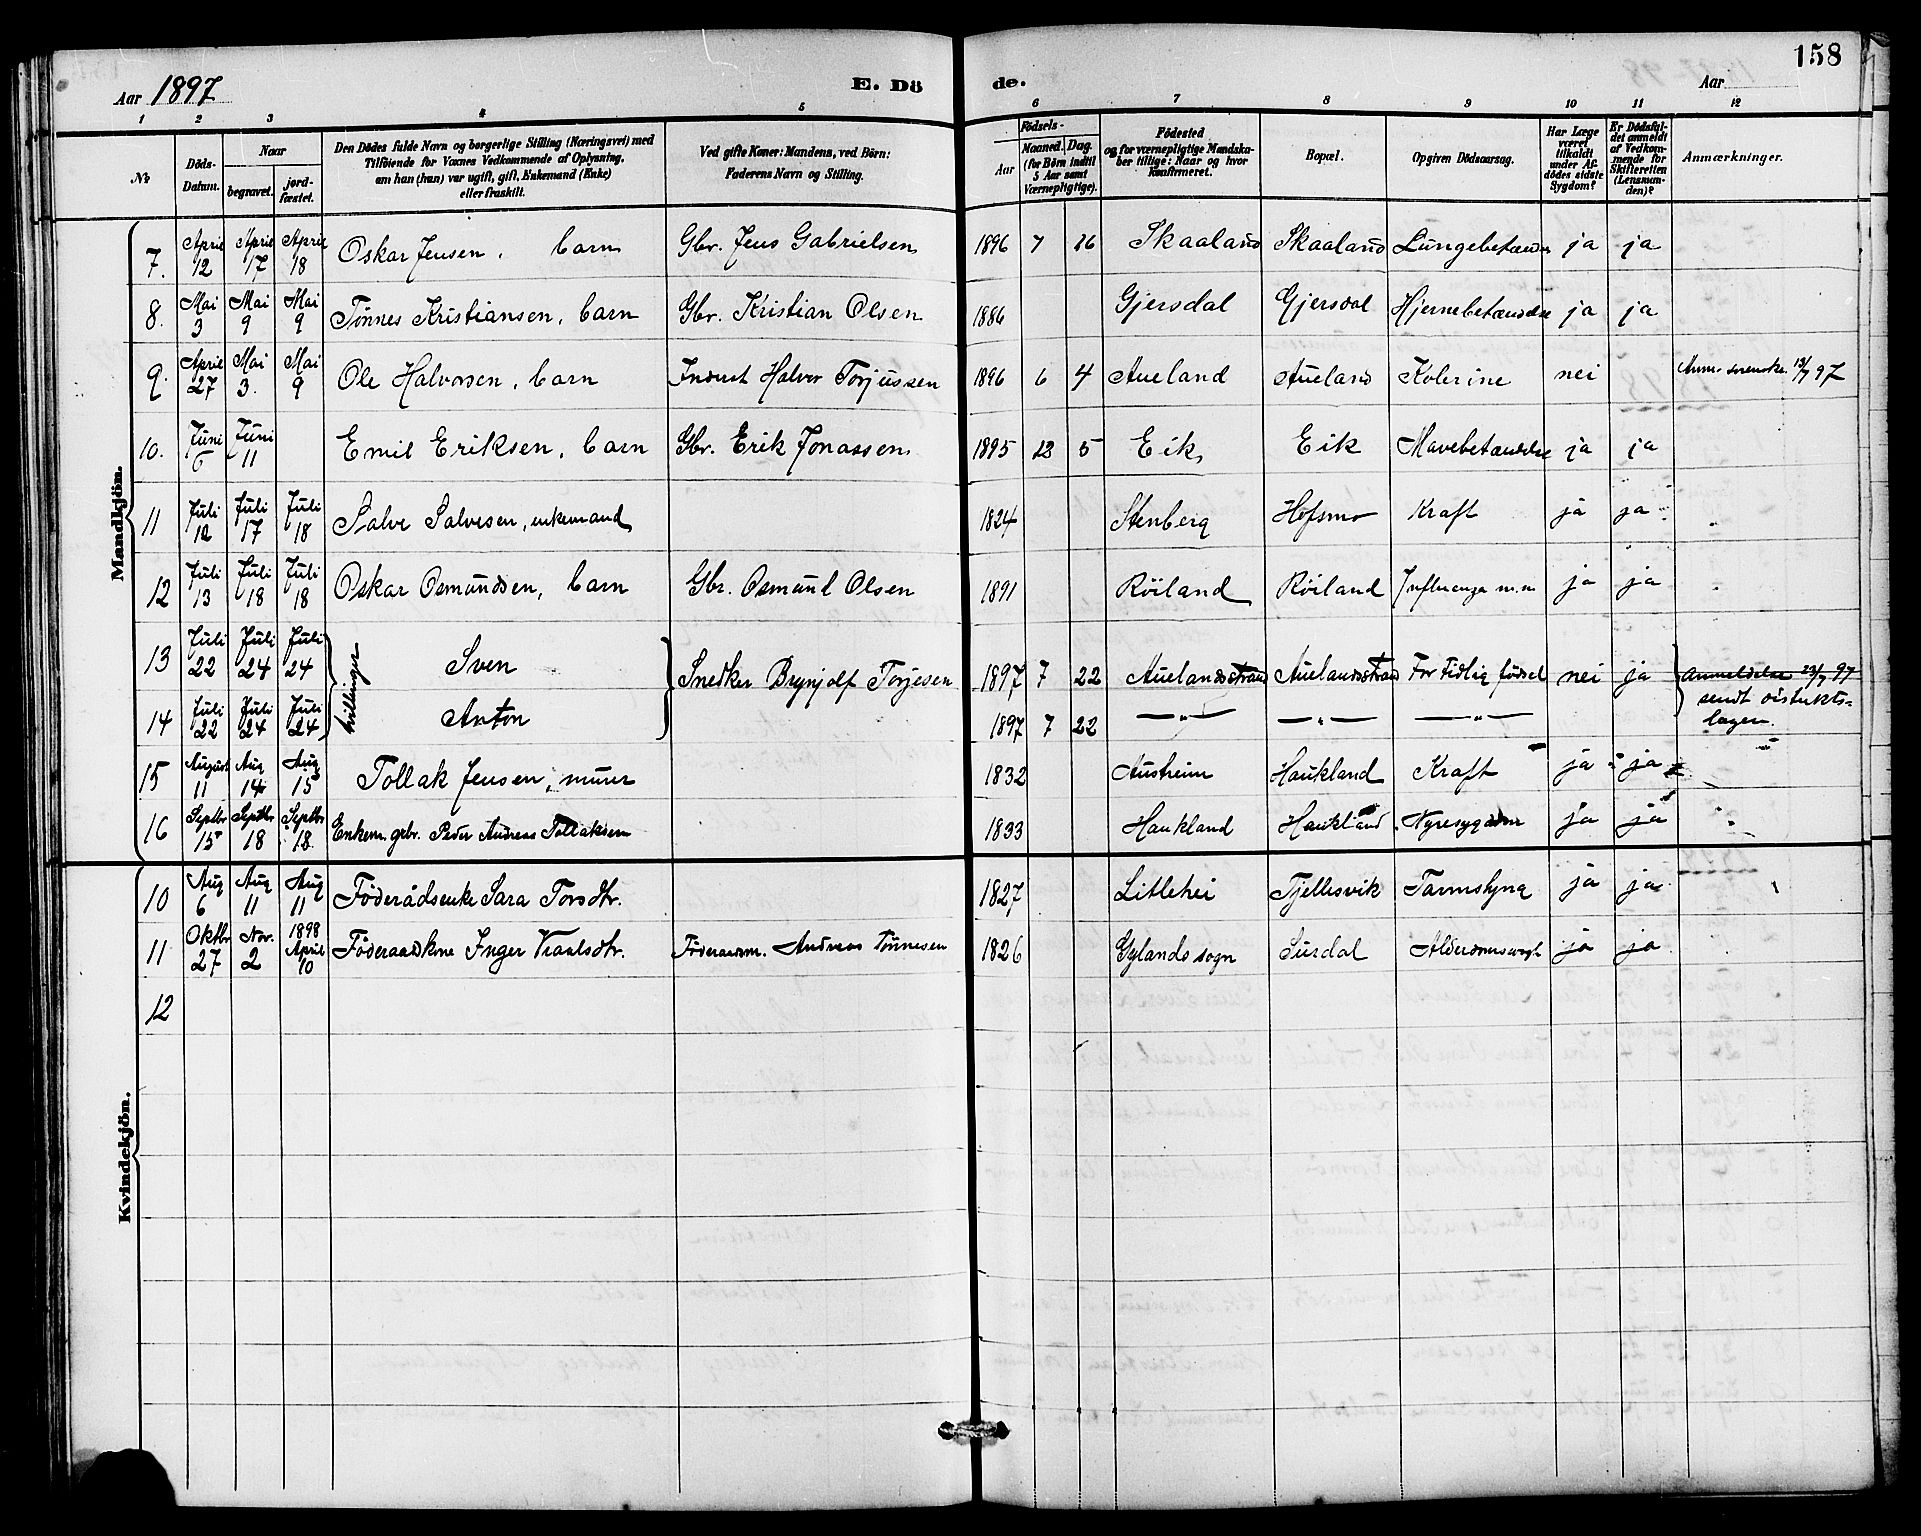 158
Aar 1897
E. Dö
de.
Aar
1 2 3 4 5 6 7 8 9 10 11 12
No
Döds-Datum.
Naar
begravet.
jord-fæstet.
Den Dödes fulde Navn og borgerlige Stilling (Næringsvei) med
Tilföiende for Voxnes Vedkommende af Oplysning,
om han (hun) var ugift, gift, Enkemand (Enke)
eller fraskilt.
Ved gifte Koner: Mandens, ved Börn:
Faderens Navn og Stilling.
Födsels-
Aar
Maaned. Dag.
(for Börn indtil
5 Aar samt
Værnepligtige).
Födested
og for værnepligtige Mandska-
ber tillige: Naar og hvor
konfirmeret.
Bopæl.
Opgiven Dödsaarsag.
Har Læge
været
tilkaldt
under Af-
dödes sidste
Sygdom?
Er Dödsfal-
det anmeldt
af Vedkom-
mende for
Skifteretten
(Lensman-
den)?
Anmærkninger.
Mandkjön.
7. April 12 April 17 April 18 Oskar Jensen, barn Gbr. Jens Gabrielsen 1896 7 16 Skaaland Skaaland Lungebetænd ja ja
8. Mai 3 Mai 9 Mai 9 Tönnes Kristiansen, barn Gbr. Kristian Olsen 1886 Gjersdal Gjersdal Hjernebetændelse ja ja
9. April 27 Mai 3. Mai 9 Ole Halvorsen, barn Inderst Halvor Torjussen 1896 6 4 Aueland Aueland Kolerine nei 97
10. Juni 6 Juni 11 Emil Eriksen, barn Gbr. Erik Jonassen 1895 12 5 Eik Eik Mavebetændelse ja ja
11 Juli 12 Juli 17 Juli 18 Salve Salvesen, enkemand 1824 Stenberg Hofsmo Kraft ja ja
12 Juli 13 Juli 18 Juli 18 Oskar Osmundsen, barn Gbr. Osmund Olsen 1891 Röiland Röiland Influenza m.m ja ja
13 Juli 22 Juli 24 Juli 24 tvillinger Sven Snedker Brynjolf Torjesen 1897 7 22 Auelandsstrand Auelandsstrand For tidlig födsel nei ja Anmeldelse 23/7 97
14 Juli 22 Juli 24 Juli 24 Anton 1897 7 22 —"— —"— —"— sendt distrikts-
lægen.
15 August 11 Aug 14 Aug 15 Tollak Jensen, murer 1832 Austheim Haukland Kraft ja ja
16 Septbr 15 Septbr 18 Septbr 18. Enkem. gbr. Peder Andreas Tollaksen 1833 Haukland Haukland Nyresygdom ja ja
Kvindekjön.
10 Aug 6 Aug 11 Aug 11 Föderådsenke Sara Torsdtr. 1827 Litlehei Tjellesvik Tarmslyng ja ja
11 Oktbr 27 Nov. 2 1898 April 10 Föderaadskone Inger Tönnesdtr. Föderaadsm. Andreas Tönnesen 1826 Gylands sogn Surdal Alderdomssvagh ja ja
12